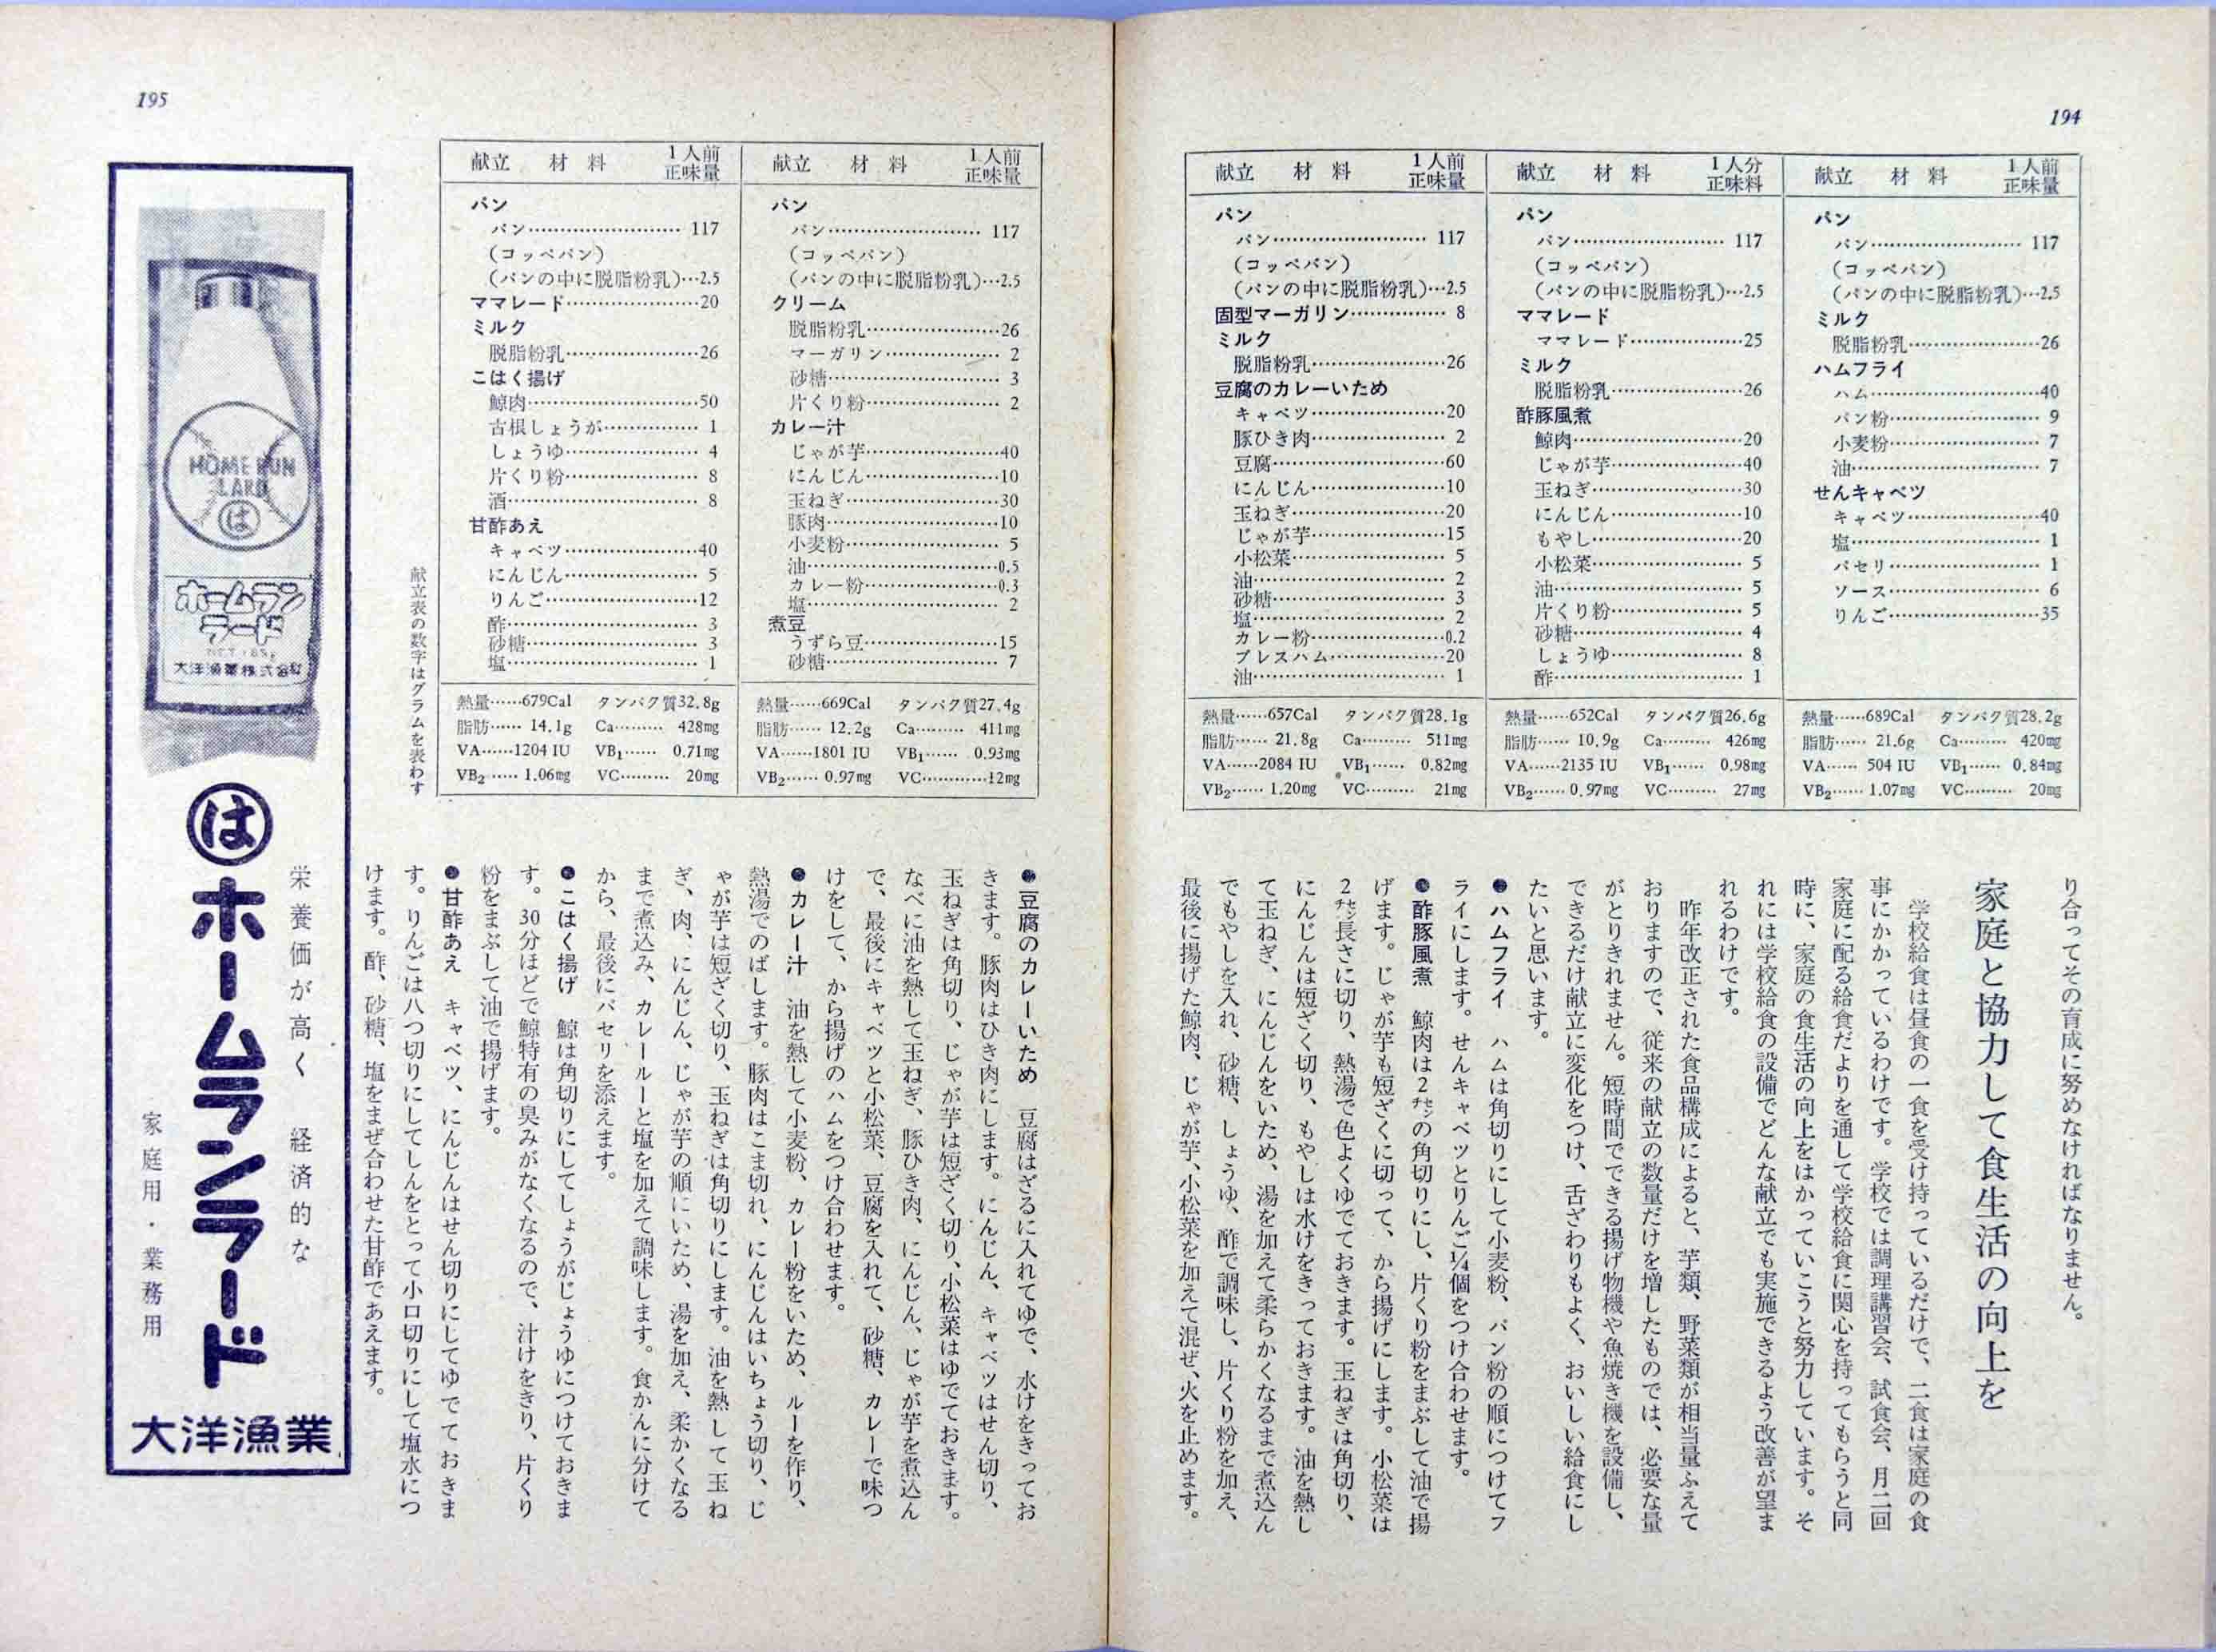 194
献立 材料 1人前正味量
パン
パン……117
(コッペパン)
(パンの中に脱脂粉乳)…2.5
ミルク
脱脂粉乳……26
ハムフライ
ハム……40
パン粉……9
小麦粉……7
油……7
せんキャベツ
キャベツ……40
塩……1
パセリ……1
ソース……6
りんご……35
熱量……689Cal タンパク質28.2g
脂肪……21.6g Ca………420mg
VA……504 IU VB₁……0.84mg
VB₂……1.07mg VC………20mg
献立 材料 1人分正味料
パン
パン……117
(コッペパン)
(パンの中に脱脂粉乳)…2.5
ママレード
ママレード……25
ミルク
脱脂粉乳……26
酢豚風煮
鯨肉……20
じゃが芋……40
玉ねぎ……30
にんじん……10
もやし……20
小松菜……5
油……5
片くり粉……5
砂糖……4
しょうゆ……8
酢……1
熱量……652Cal タンパク質26.6g
脂肪……10.9g Ca………426mg
VA……2135 IU VB₁……0.98mg
VB₂……0.97mg VC………27mg
献立 材料 1人前正味量
パン
パン……117
(コッペパン)
(パンの中に脱脂粉乳)…2.5
固型マーガリン……8
ミルク
脱脂粉乳……26
豆腐のカレーいため
キャベツ……20
豚ひき肉……2
豆腐……60
にんじん……10
玉ねぎ……20
じゃが芋……15
小松菜……5
油……2
砂糖……3
塩……2
カレー粉……0.2
プレスハム……20
油……1
熱量……657Cal タンパク質28.1g
脂肪……21.8g Ca………511mg
VA……2084 IU VB₁……0.82mg
VB₂……1.20mg VC………21mg
り合ってその育成に努めなければなりません。
家庭と協力して食生活の向上を
学校給食は昼食の一食を受け持っているだけで、二食は家庭の食
事にかかっているわけです。学校では調理講習会、試食会、月二回
家庭に配る給食だよりを通して学校給食に関心を持ってもらうと同
時に、家庭の食生活の向上をはかっていこうと努力しています。そ
れには学校給食の設備でどんな献立でも実施できるよう改善が望ま
れるわけです。
昨年改正された食品構成によると、芋類、野菜類が相当量ふえて
おりますので、従来の献立の数量だけを増したものでは、必要な量
がとりきれません。短時間でできる揚げ物機や魚焼き機を設備し、
できるだけ献立に変化をつけ、舌ざわりもよく、おいしい給食にし
たいと思います。
●ハムフライ ハムは角切りにして小麦粉、パン粉の順につけてフ
ライにします。せんキャベツとりんご¼個をつけ合わせます。
●酢豚風煮 鯨肉は2㌢の角切りにし、片くり粉をまぶして油で揚
げます。じゃが芋も短ざくに切って、から揚げにします。小松菜は
2㌢長さに切り、熱湯で色よくゆでておきます。玉ねぎは角切り、
にんじんは短ざく切り、もやしは水けをきっておきます。油を熱し
て玉ねぎ、にんじんをいため、湯を加えて柔らかくなるまで煮込ん
でもやしを入れ、砂糖、しょうゆ、酢で調味し、片くり粉を加え、
最後に揚げた鯨肉、じゃが芋、小松菜を加えて混ぜ、火を止めます。
195
献立 材料 1人前正味量
パン
パン……117
(コッペパン)
(パンの中に脱脂粉乳)…2.5
クリーム
脱脂粉乳……26
マーガリン……2
砂糖……3
片くり粉……2
カレー汁
じゃが芋……40
にんじん……10
玉ねぎ……30
豚肉……10
小麦粉……5
油……0.5
カレー粉……0.3
塩……2
煮豆
うずら豆……15
砂糖……7
熱量……669Cal タンパク質27.4g
脂肪……12.2g Ca………411mg
VA……1801 IU VB₁……0.93mg
VB₂……0.97mg VC………12mg
献立 材料 1人前正味量
パン
パン……117
(コッペパン)
(パンの中に脱脂粉乳)…2.5
ママレード……20
ミルク
脱脂粉乳……26
こはく揚げ
鯨肉……50
古根しょうが……1
しょうゆ……4
片くり粉……8
酒……8
甘酢あえ
キャベツ……40
にんじん……5
りんご……12
酢……3
砂糖……3
塩……1
熱量……679Cal タンパク質32.8g
脂肪……14.1g Ca………428mg
VA……1204 IU VB₁……0.71mg
VB₂……1.06mg VC………20mg
献立表の数字はグラムを表わす
●豆腐のカレーいため 豆腐はざるに入れてゆで、水けをきってお
きます。豚肉はひき肉にします。にんじん、キャベツはせん切り、
玉ねぎは角切り、じゃが芋は短ざく切り、小松菜はゆでておきます。
なべに油を熱して玉ねぎ、豚ひき肉、にんじん、じゃが芋を煮込ん
で、最後にキャベツと小松菜、豆腐を入れて、砂糖、カレーで味つ
けをして、から揚げのハムをつけ合わせます。
●カレー汁 油を熱して小麦粉、カレー粉をいため、ルーを作り、
熱湯でのばします。豚肉はこま切れ、にんじんはいちょう切り、じ
ゃが芋は短ざく切り、玉ねぎは角切りにします。油を熱して玉ね
ぎ、肉、にんじん、じゃが芋の順にいため、湯を加え、柔かくなる
まで煮込み、カレールーと塩を加えて調味します。食かんに分けて
から、最後にパセリを添えます。
●こはく揚げ 鯨は角切りにしてしょうがじょうゆにつけておきま
す。30分ほどで鯨特有の臭みがなくなるので、汁けをきり、片くり
粉をまぶして油で揚げます。
●甘酢あえ キャベツ、にんじんはせん切りにしてゆでておきま
す。りんごは八つ切りにしてしんをとって小口切りにして塩水につ
けます。酢、砂糖、塩をまぜ合わせた甘酢であえます。
HOME RUN
LARD
は
ホームラン
ラード
大洋漁業株式会社
栄養価が高く 経済的な
はホームランラード
家庭用・業務用
大洋漁業